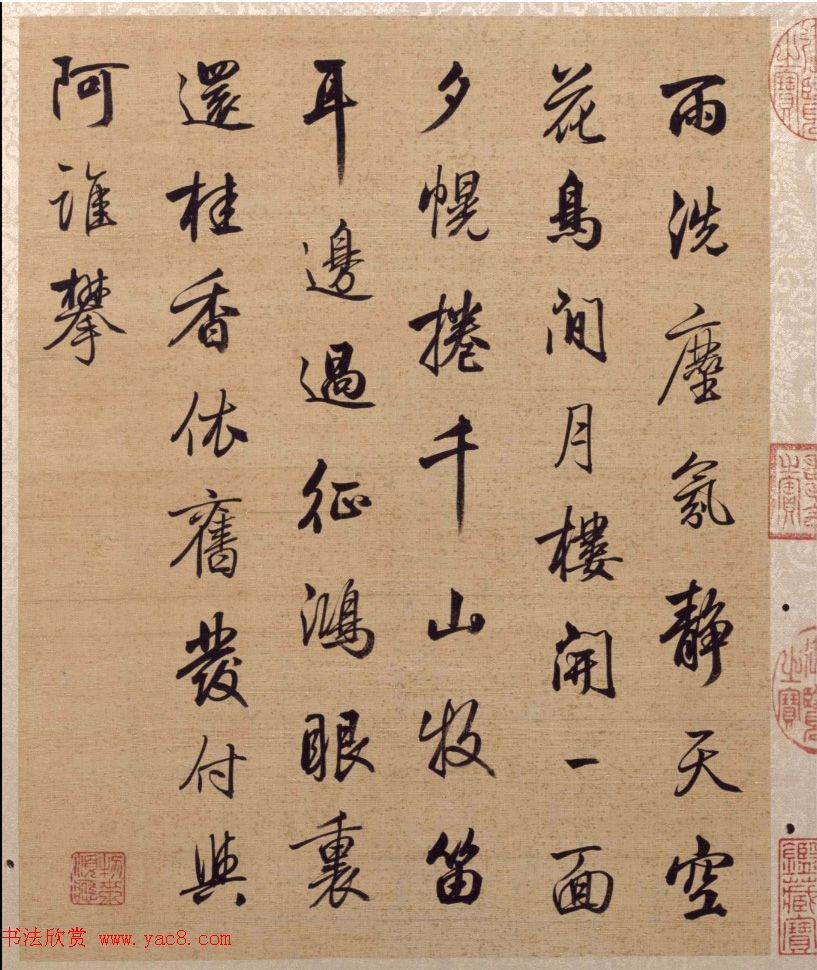 雨洗塵氛靜天空
花鳥閒月樓開一面
夕幌捲千山牧笛
耳邊過征鴻眼裏
還桂香依舊發付與
阿誰攀
鑑藏寶
书法欣赏 www.yac8.com